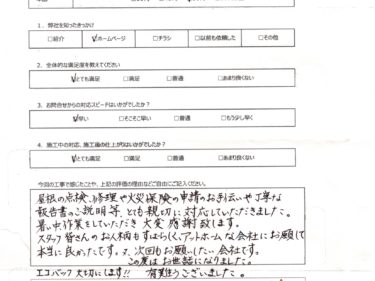 1. 弊社を知ったきっかけ
□紹介 ☑ホームページ □チラシ □以前も依頼した □その他
2. 全体的な満足度を教えてください
☑とても満足 □満足 □普通 □あまり良くない
3. お問合せからの対応スピードはいかがでしたか?
☑早い □そこそこ早い □普通 □もう少し早く
4. 施工中の対応、施工後の仕上がりはいかがでしたか?
☑とても満足 □満足 □普通 □あまり良くない
今回の工事で感じたことや、上記の評価の理由などご自由にご記入ください。
屋根の点検、修理や火災保険の申請のお手伝いや丁寧な
報告書のご説明等、とても親切に対応していただきました。
暑い中作業をしていただき大変感謝致します。
スタッフ皆さんのお人柄もすばらしく、アットホームな会社にお願いして
本当に良かったです。又、次回もお願いしたい会社です。
この度はお世話になりました。
エコバック大切にします!! 有難うございました。